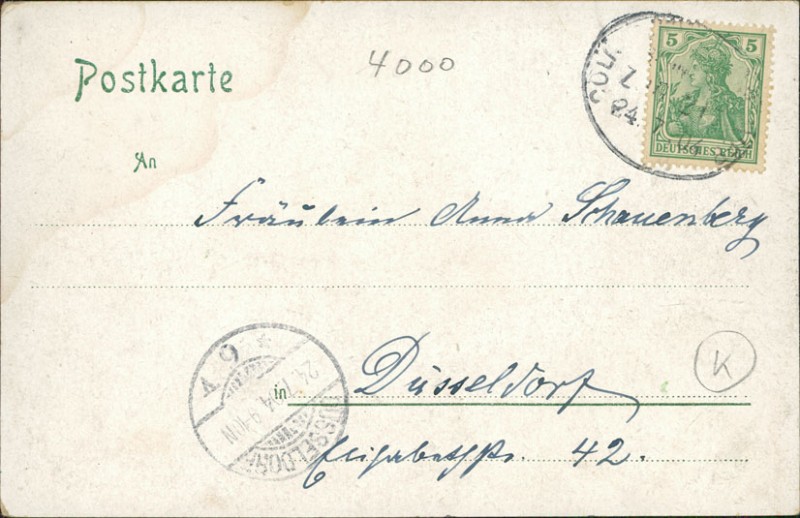 4000
Postkarte
5 5
DEUTSCHES REICH
24.
An
Fräulein Anna Schauenberg
K
in Düsseldorf
Elisabethstr. 42.
DÜSSELDORF
24.7.04 9-10N